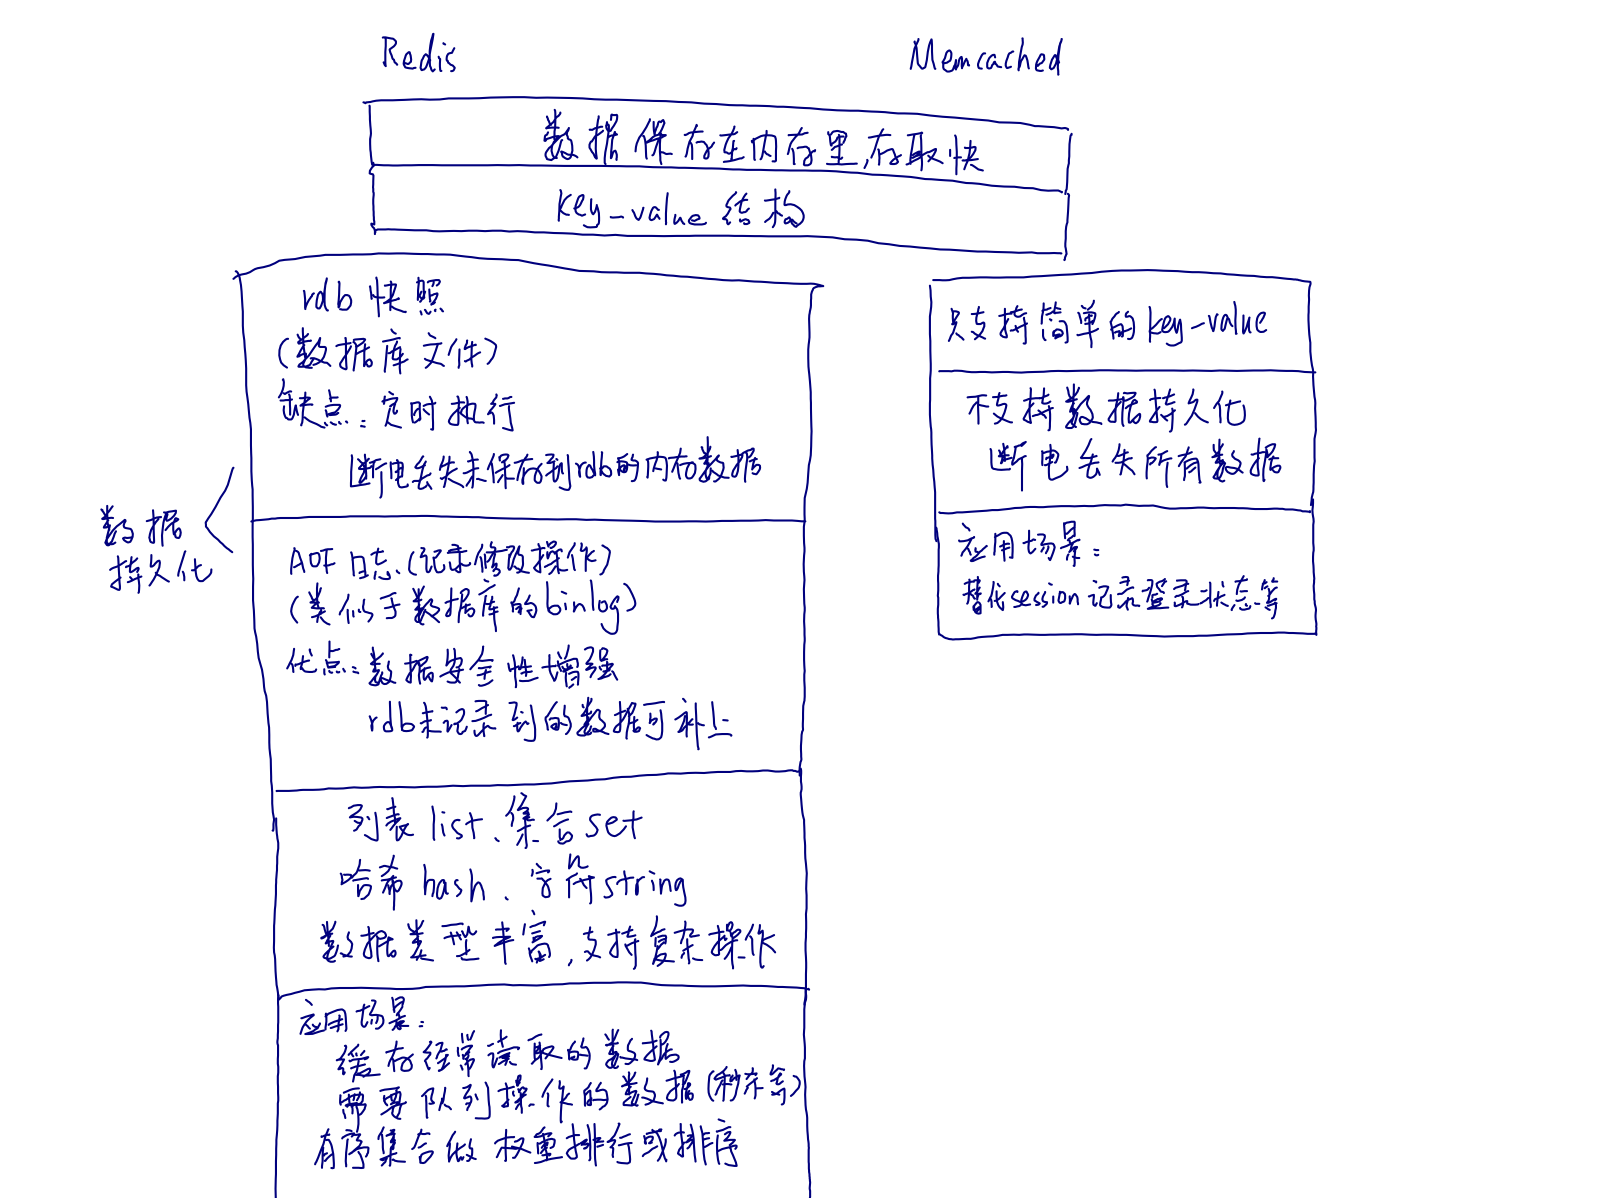 Redis
Memcached
数据保存在内存里,存取快
key-value结构
rdb快照
(数据库文件)
缺点:定时执行
断电丢失未保存到rdb的内存数据
数据
持久化
AOF日志(记录修改操作)
(类似于数据库的binlog)
优点:数据安全性增强
rdb未记录到的数据可补上
列表list、集合set
哈希hash、字符string
数据类型丰富,支持复杂操作
应用场景:
缓存经常读取的数据
需要队列操作的数据(秒杀等)
有序集合做权重排行或排序
只支持简单的key-value
不支持数据持久化
断电丢失所有数据
应用场景:
替代session记录登录状态等